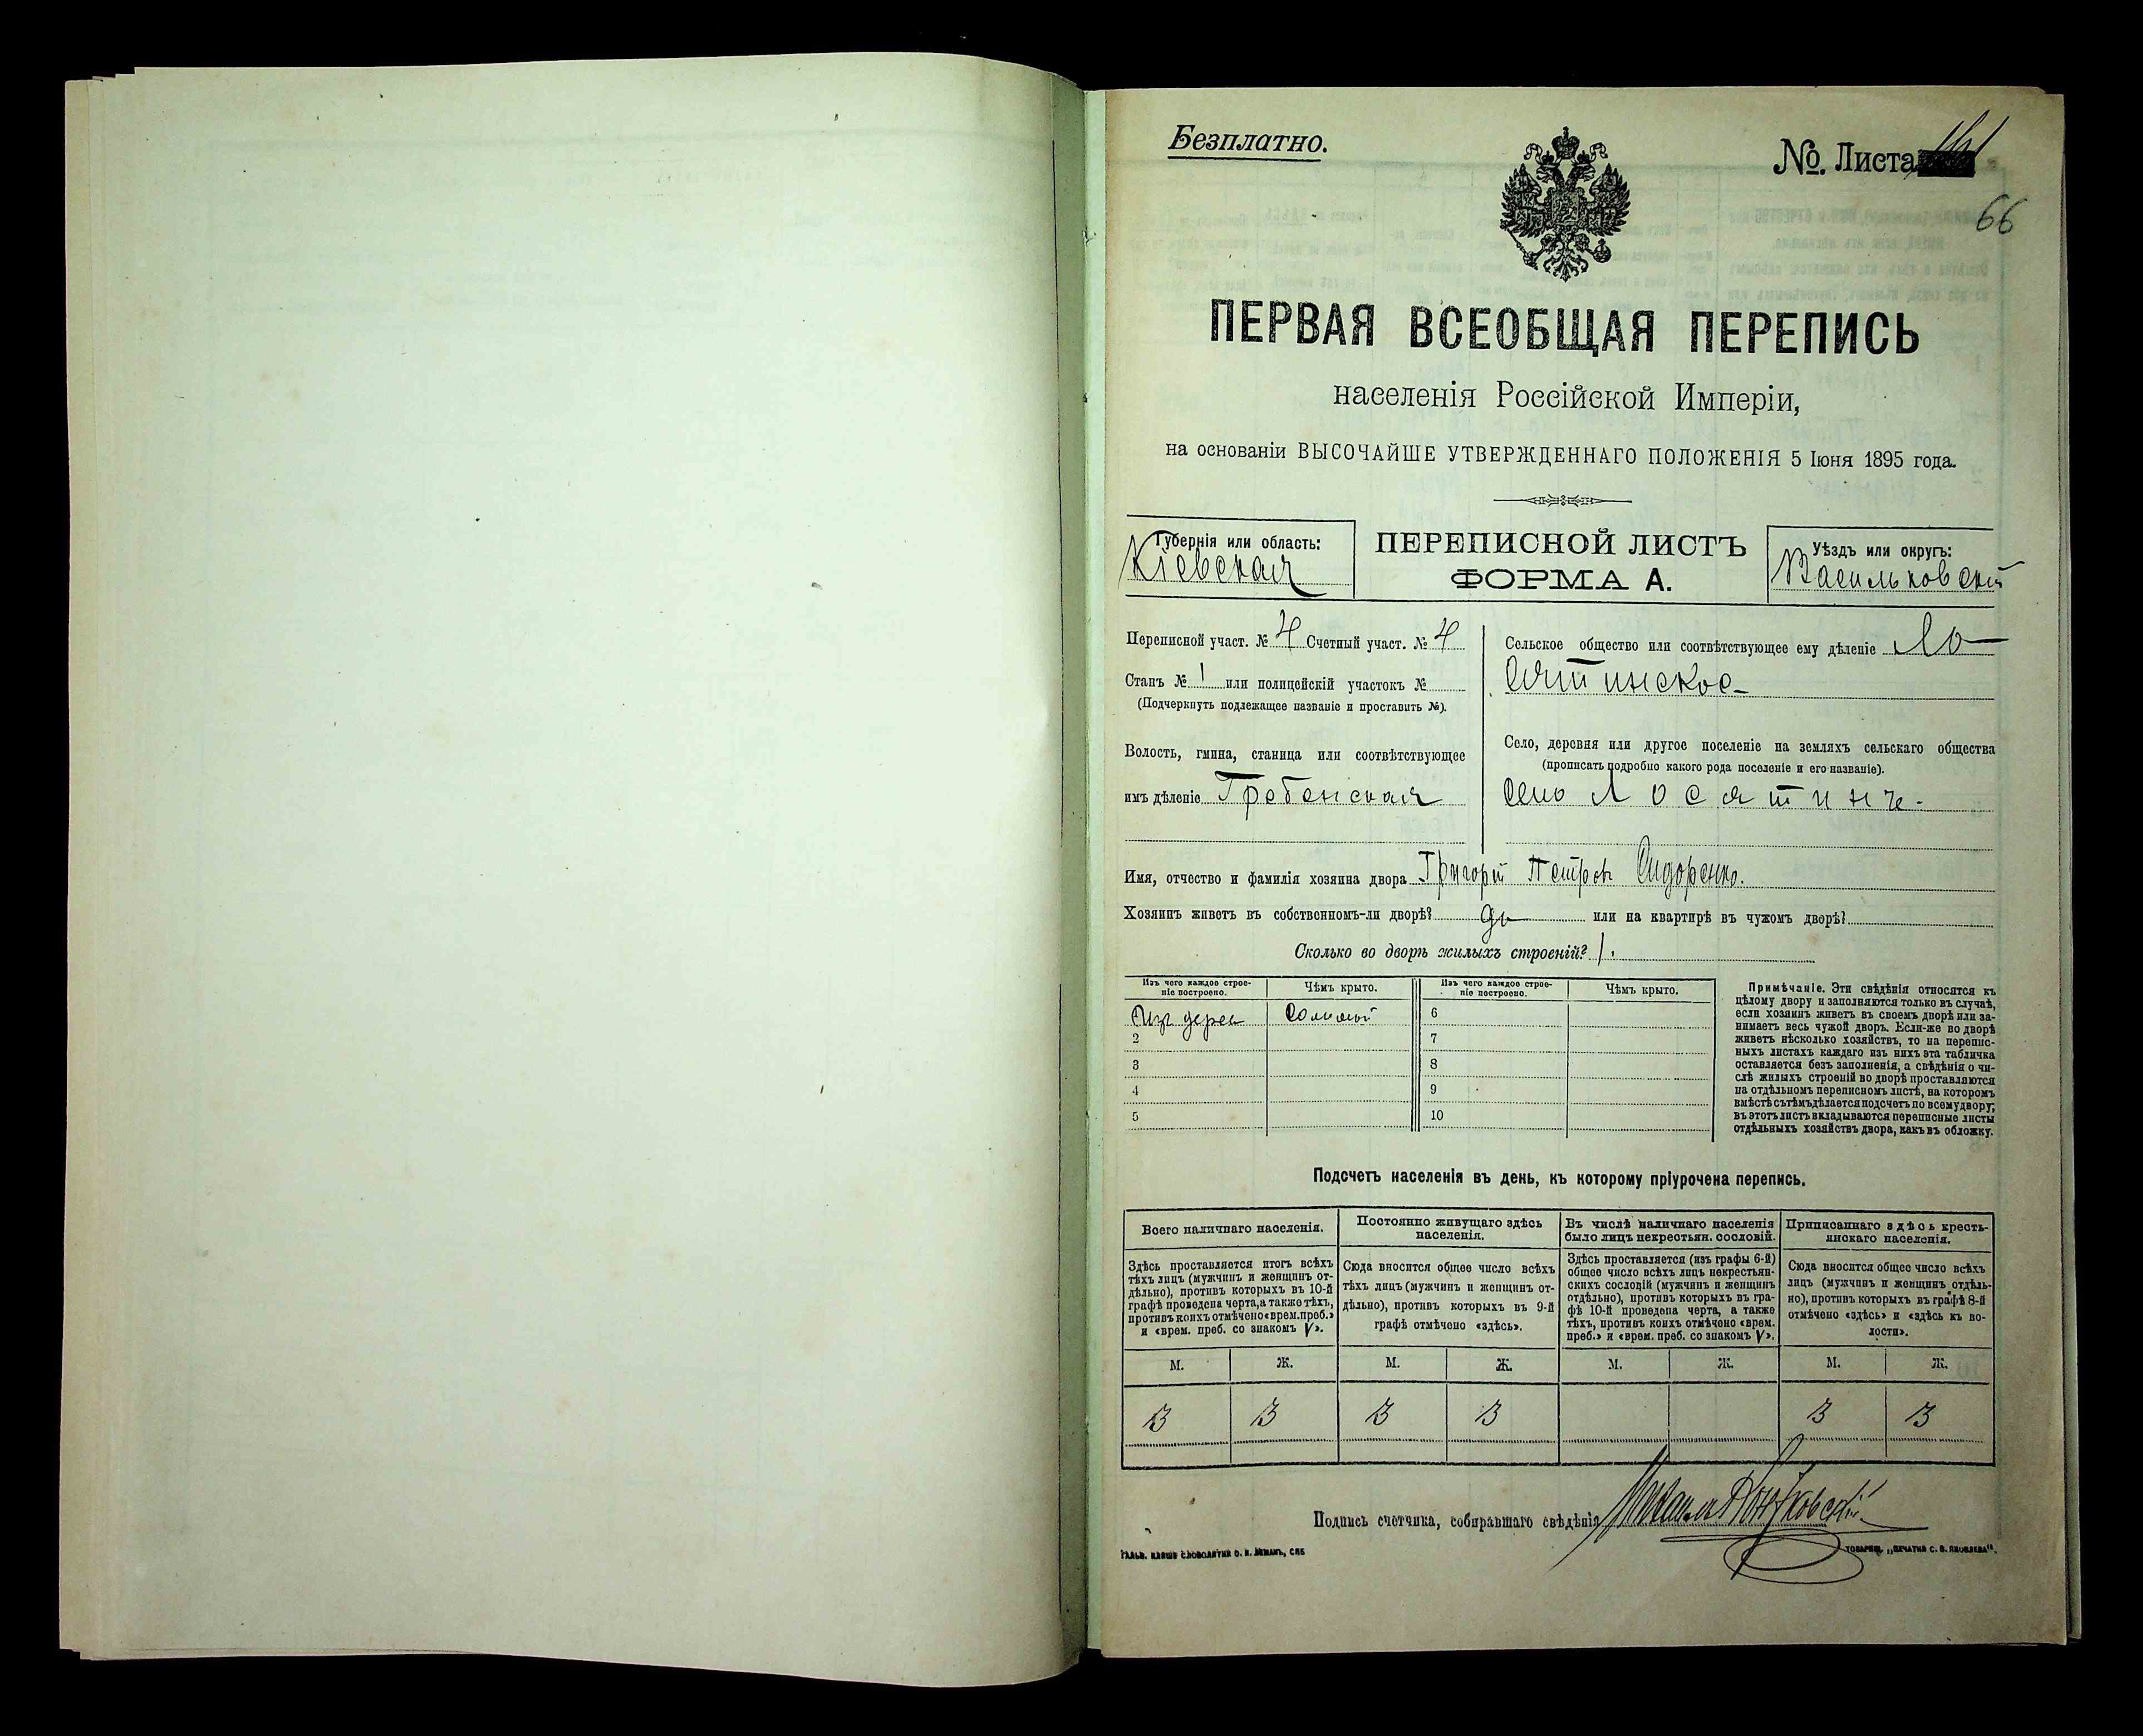 Безплатно.
№. Листа 161
66
ПЕРВАЯ ВСЕОБЩАЯ ПЕРЕПИСЬ
населенія Россійской Имперіи,
на основаніи ВЫСОЧАЙШЕ УТВЕРЖДЕННАГО ПОЛОЖЕНІЯ 5 Іюня 1895 года.
Губернія или область:
Кіевская
ПЕРЕПИСНОЙ ЛИСТЪ
ФОРМА А.
Уѣздъ или округъ:
Васильковскій
Переписной участ. № 4 Счетный участ. № 4
Станъ № 1 или полицейскій участокъ №
(Подчеркнуть подлежащее названіе и проставить №).
Волость, гмина, станица или соотвѣтствующее
имъ дѣленіе Гребенская
Сельское общество или соотвѣтствующее ему дѣленіе Ло-
сятинское
Село, деревня или другое поселеніе на земляхъ сельскаго общества
(прописать подробно какого рода поселеніе и его названіе).
село Лосятинъ.
Имя, отчество и фамилія хозяина двора Григорій Петровъ Сидоренко.
Хозяинъ живетъ въ собственномъ-ли дворѣ? да или на квартирѣ въ чужомъ дворѣ?
Сколько во дворѣ жилыхъ строеній? 1.
Изъ чего каждое строе-
ніе построено.
Чѣмъ крыто.
Изъ чего каждое строе-
ніе построено.
Чѣмъ крыто.
Изъ дерев
Соломой
6
2
7
3
8
4
9
5
10
Примѣчаніе. Эти свѣдѣнія относятся къ
цѣлому двору и заполняются только въ случаѣ,
если хозяинъ живетъ въ своемъ дворѣ или за-
нимаетъ весь чужой дворъ. Если-же во дворѣ
живетъ нѣсколько хозяйствъ, то на перепис-
ныхъ листахъ каждаго изъ нихъ эта табличка
оставляется безъ заполненія, а свѣдѣнія о чи-
слѣ жилыхъ строеній во дворѣ проставляются
на отдѣльномъ переписномъ листѣ, на которомъ
вмѣстѣ съ тѣмъ дѣлается подсчетъ по всему двору;
въ этотъ листъ вкладываются переписные листы
отдѣльныхъ хозяйствъ двора, какъ въ обложку.
Подсчетъ населенія въ день, къ которому пріурочена перепись.
Всего наличнаго населенія.
Постоянно живущаго здѣсь
населенія.
Въ числѣ наличнаго населенія
было лицъ некрестьян. сословій.
Приписаннаго здѣсь кресть-
янскаго населенія.
Здѣсь проставляется итогъ всѣхъ
тѣхъ лицъ (мужчинъ и женщинъ от-
дѣльно), противъ которыхъ въ 10-й
графѣ проведена черта, а также тѣхъ,
противъ коихъ отмѣчено «врем. преб.»
и «врем. преб. со знакомъ V».
Сюда вносится общее число всѣхъ
тѣхъ лицъ (мужчинъ и женщинъ от-
дѣльно), противъ которыхъ въ 9-й
графѣ отмѣчено «здѣсь».
Здѣсь проставляется (изъ графы 6-й)
общее число всѣхъ лицъ некрестьян-
скихъ сословій (мужчинъ и женщинъ
отдѣльно), противъ которыхъ въ гра-
фѣ 10-й проведена черта, а также
тѣхъ, противъ коихъ отмѣчено «врем.
преб.» и «врем. преб. со знакомъ V».
Сюда вносится общее число всѣхъ
лицъ (мужчинъ и женщинъ отдѣль-
но), противъ которыхъ въ графѣ 8-й
отмѣчено «здѣсь» и «здѣсь въ во-
лости».
М. Ж. М. Ж. М. Ж. М. Ж.
3 3 3 3 3 3
Подпись счетчика, собиравшаго свѣдѣнія Михаилъ
ГАЛЬВ. КЛИШЕ СЛОВОЛИТНИ О. И. ЛЕМАНЪ, СПБ
ТОВАРИЩ. „ПЕЧАТНЯ С. П. ЯКОВЛЕВА".